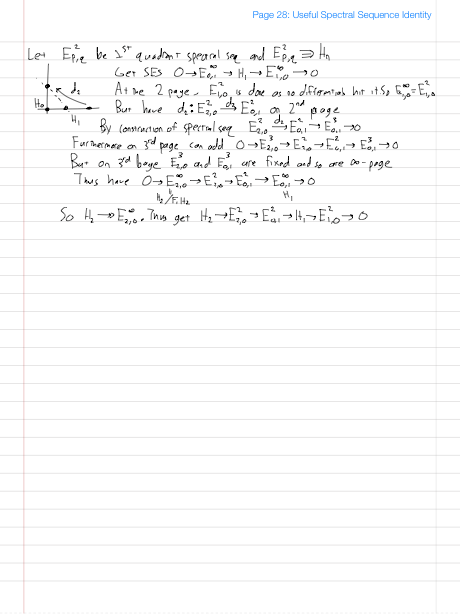 Page 28: Useful Spectral Sequence Identity
Let E²_{p,q} be 1ˢᵗ quadrant spectral seq and E²_{p,q} ⇒ Hₙ
Get SES 0 → E^∞_{0,1} → H₁ → E^∞_{1,0} → 0
d₂
At the 2 page, E²_{1,0} is done as no differentials hit it so E^∞_{1,0} = E²_{1,0}
H₀
H₁
But have d₂: E²_{2,0} →^{d₂} E²_{0,1} on 2ⁿᵈ page
By construction of spectral seq E²_{2,0} →^{d₂} E²_{0,1} → E³_{0,1} → 0
Furthermore on 3ʳᵈ page can add 0 → E³_{2,0} → E²_{2,0} → E²_{0,1} → E³_{0,1} → 0
But on 3ʳᵈ page E³_{2,0} and E³_{0,1} are fixed and so are ∞-page
Thus have 0 → E^∞_{2,0} → E²_{2,0} → E²_{0,1} → E^∞_{0,1} → 0
H₂/F₁H₂
H₁
So H₂ ↠ E^∞_{2,0}. Thus get H₂ → E²_{2,0} → E²_{0,1} → H₁ → E²_{1,0} → 0